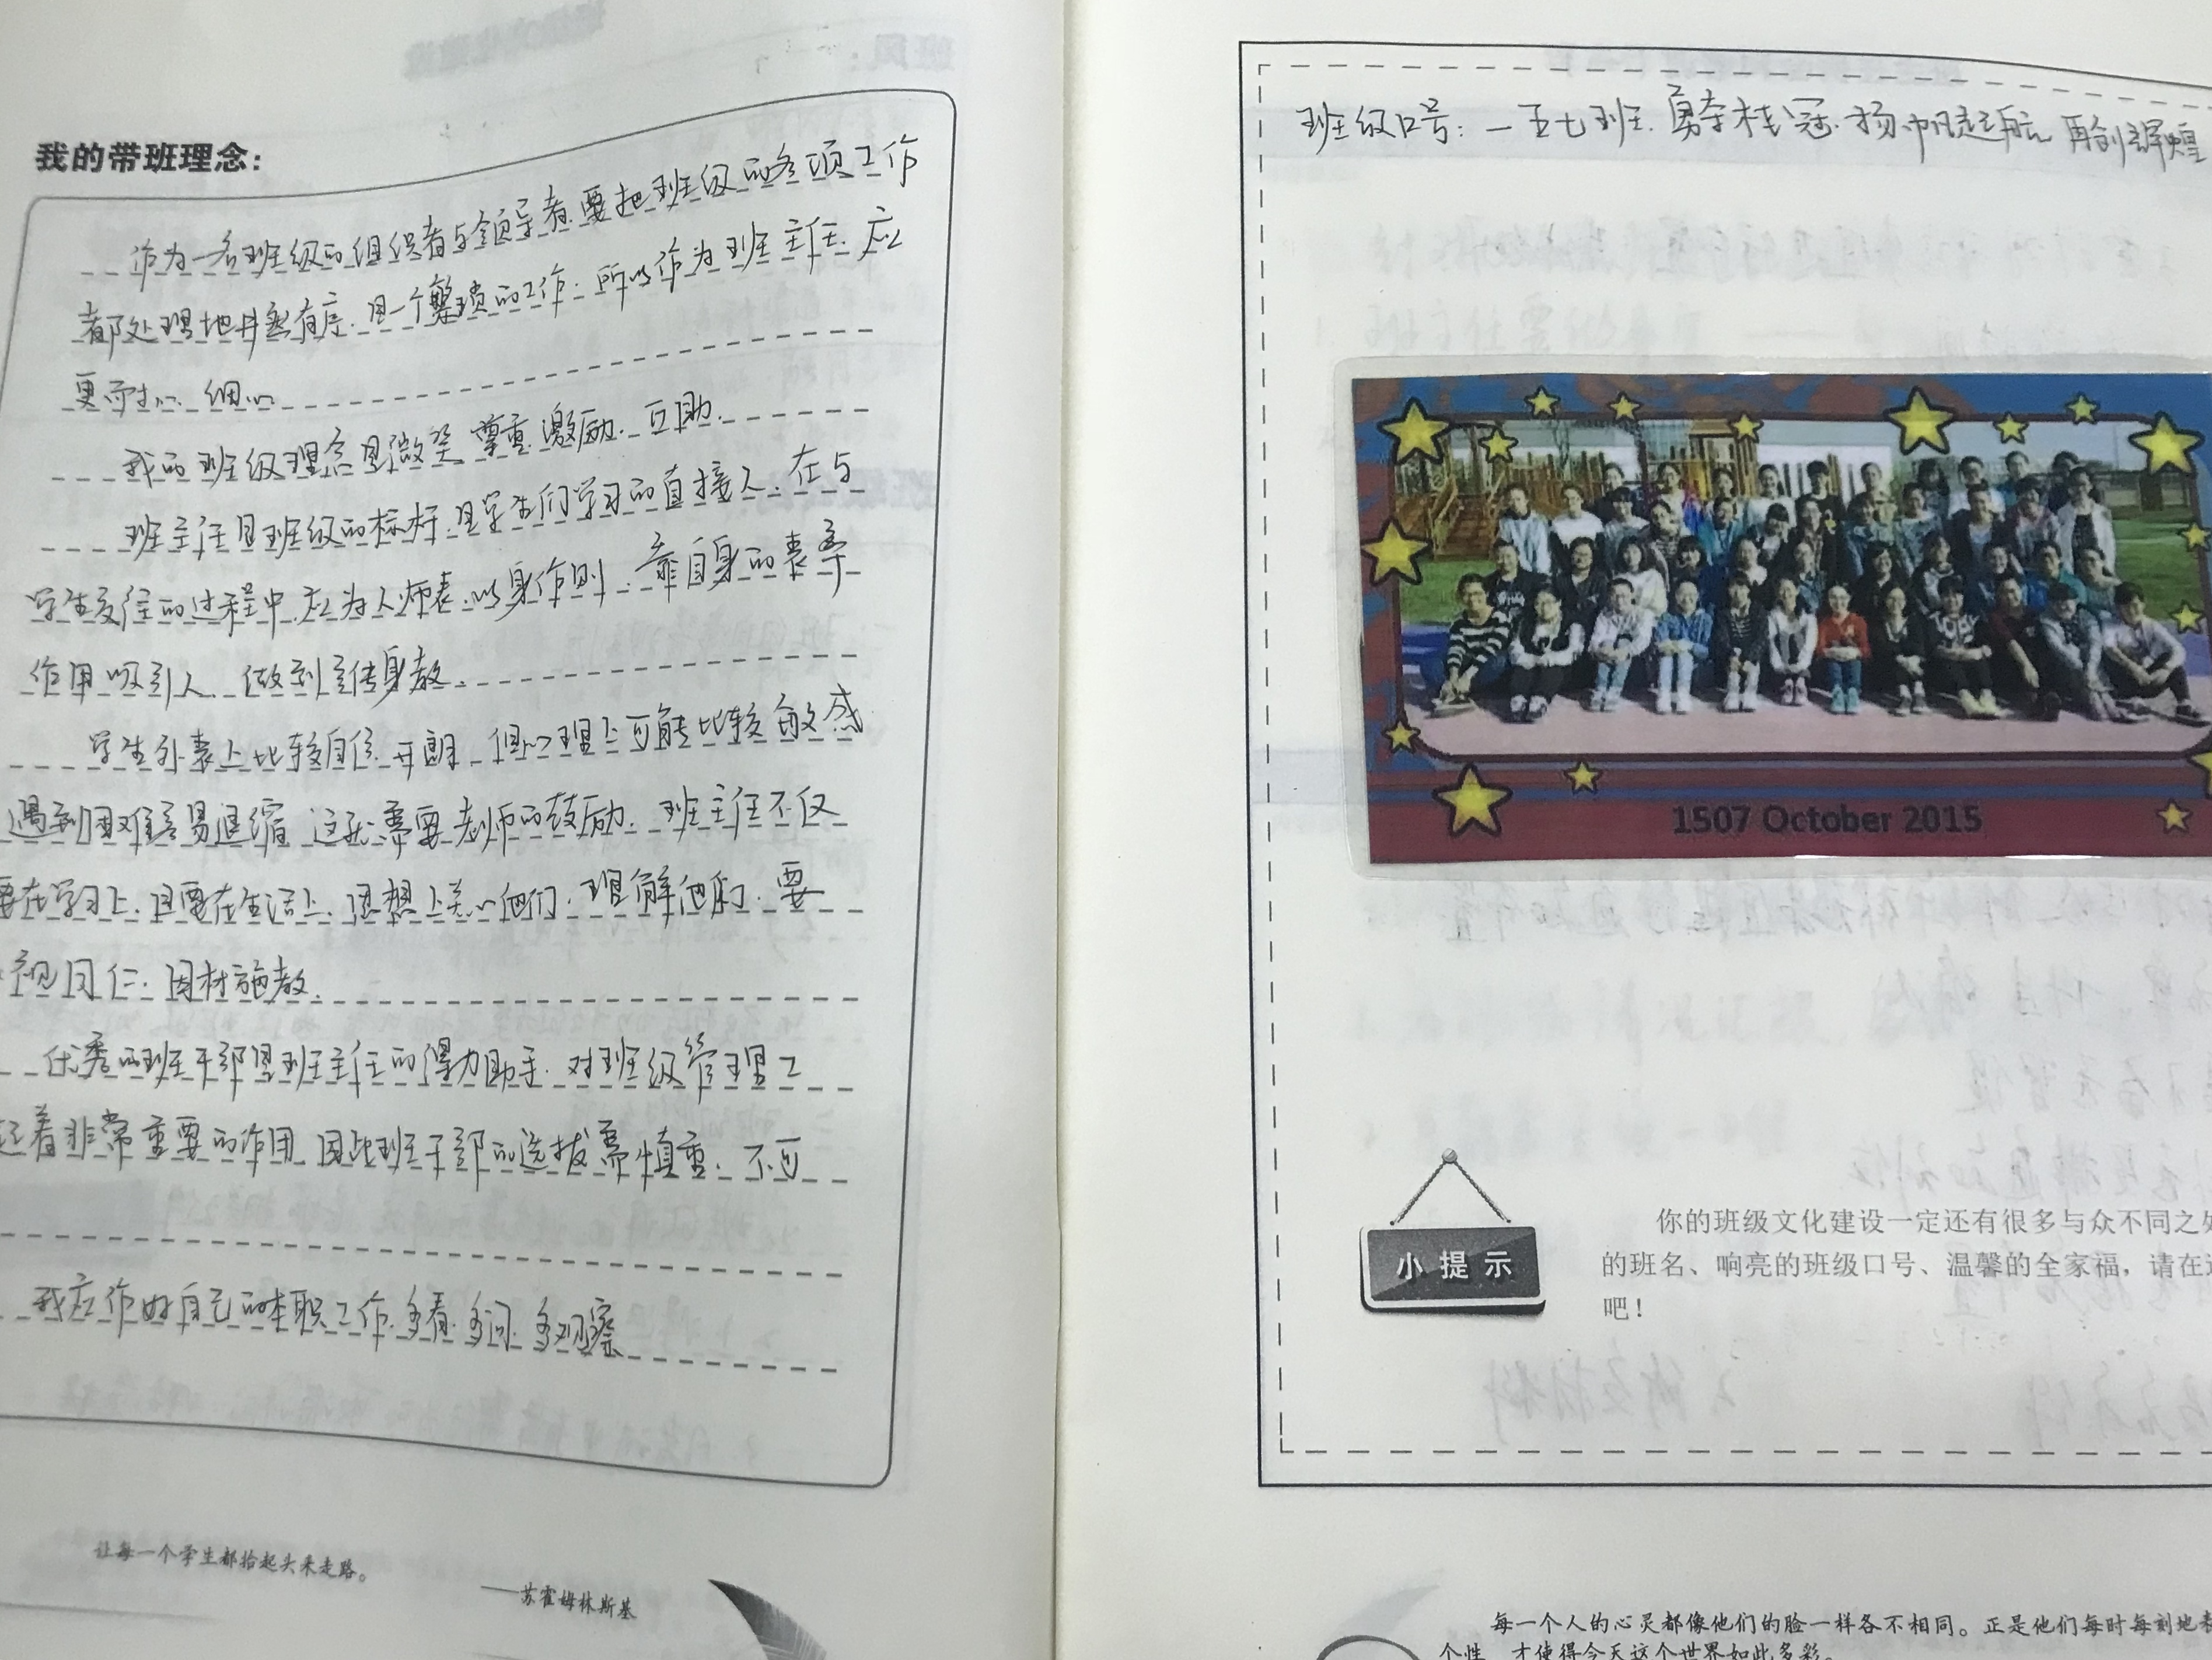 我的带班理念:
作为一名班级的组织者与领导者.要把班级的各项工作
都处理地井然有序.是一个繁琐的工作.所以作为班主任.应
更耐心、细心
我的班级理念是微笑.尊重.激励.互助.
班主任是班级的标杆.是学生们学习的直接人.在与
学生交往的过程中.应为人师表.以身作则.靠自身的表率
作用吸引人.做到言传身教.
学生外表上比较自信.开朗.但心理上可能比较敏感
遇到困难容易退缩.这就需要老师的鼓励.班主任不仅
要在学习上.且要在生活上.思想上关心他们.理解他们.要
视同仁.因材施教.
优秀的班干部是班主任的得力助手.对班级管理工
起着非常重要的作用.因此班干部的选拔需慎重.不可
我应作好自己的本职工作.多看.多问.多观察
让每一个学生都抬起头来走路。
——苏霍姆林斯基
班级口号:一五七班.勇夺桂冠.扬帆起航 再创辉煌
1507 October 2015
小提示
你的班级文化建设一定还有很多与众不同之处
的班名、响亮的班级口号、温馨的全家福，请在
吧！
每一个人的心灵都像他们的脸一样各不相同。正是他们每时每刻地
个性，才使得今天这个世界如此多彩。